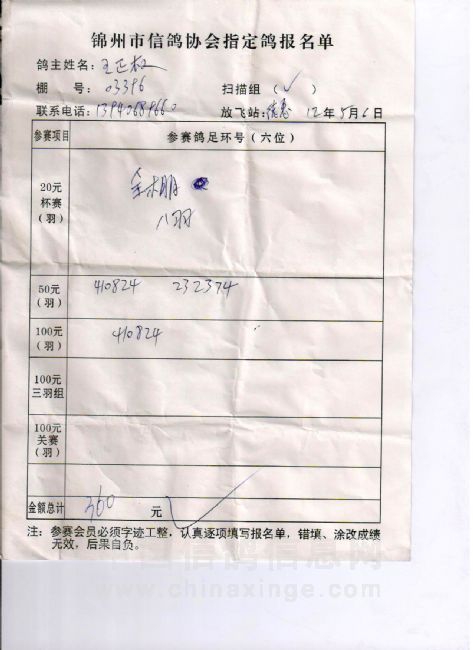 锦州市信鸽协会指定鸽报名单
鸽主姓名：王正权
棚 号：03396 扫描组（✓）
联系电话：13940689660 放飞站：德惠 12年5月6日
参赛项目 参赛鸽足环号（六位）
20元
杯赛
（羽）
八羽
50元
（羽）
410824 232374
100元
（羽）
410824
100元
三羽组
100元
关赛
（羽）
金额总计 360 元
注：参赛会员必须字迹工整，认真逐项填写报名单，错填、涂改成绩
无效，后果自负。
中国信鸽信息网
www.chinaxinge.com